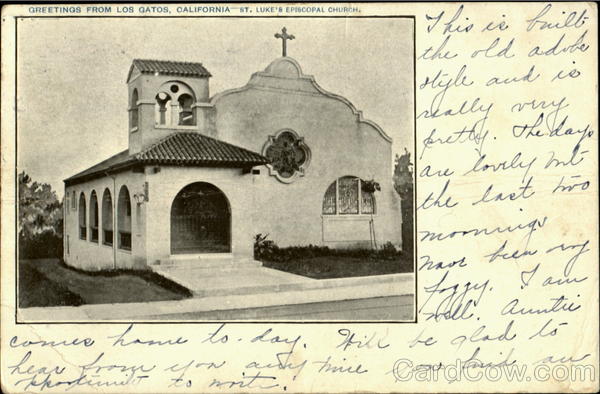 GREETINGS FROM LOS GATOS, CALIFORNIA ST. LUKE'S EPISCOPAL CHURCH.
This is built
the old adobe
style and is
really very
pretty. The days
are lovely but
the last two
moornings
have been very
foggy. I am
well. Auntie
comes home to-day. Will be glad to
hear from you any time you find an
opportunit to write.
CardCow.com